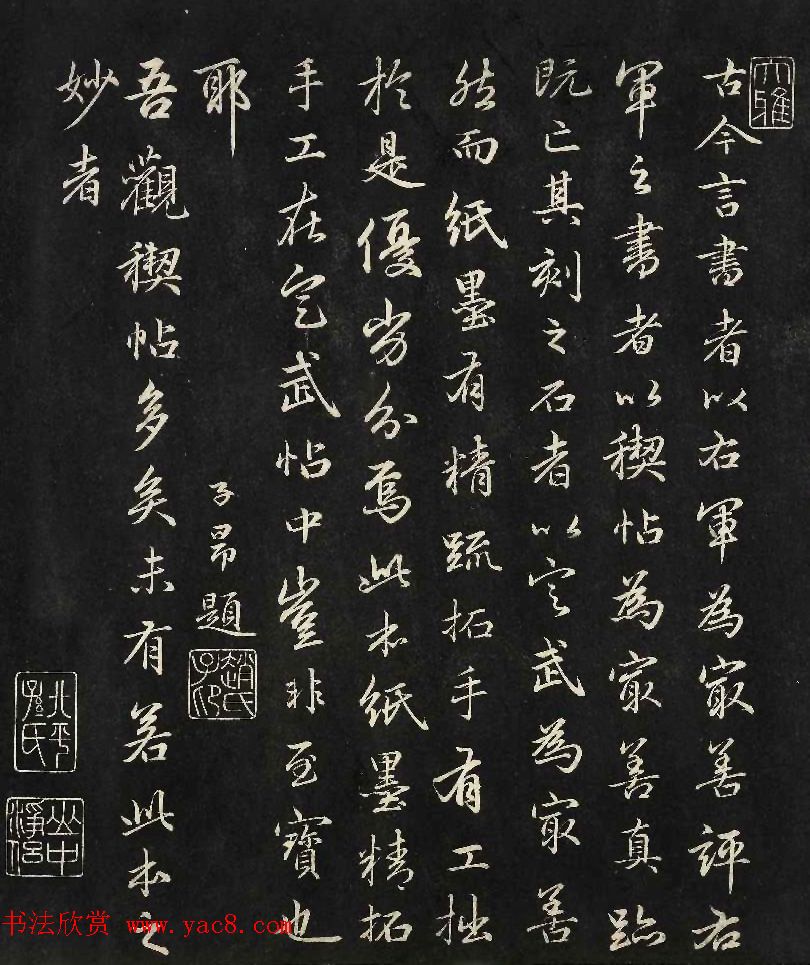 大雅
古今言書者以右軍為㝡善評右
軍之書者以稧帖為㝡善真跡
既亡其刻之石者以定武為㝡善
然而紙墨有精疏拓手有工拙
於是優劣分焉此本紙墨精拓
手工在定武帖中豈非至寶也
耶
子昂題
趙氏子昂
吾觀稧帖多矣未有若此本之
妙者
北平孫氏
书法欣赏 www.yac8.com